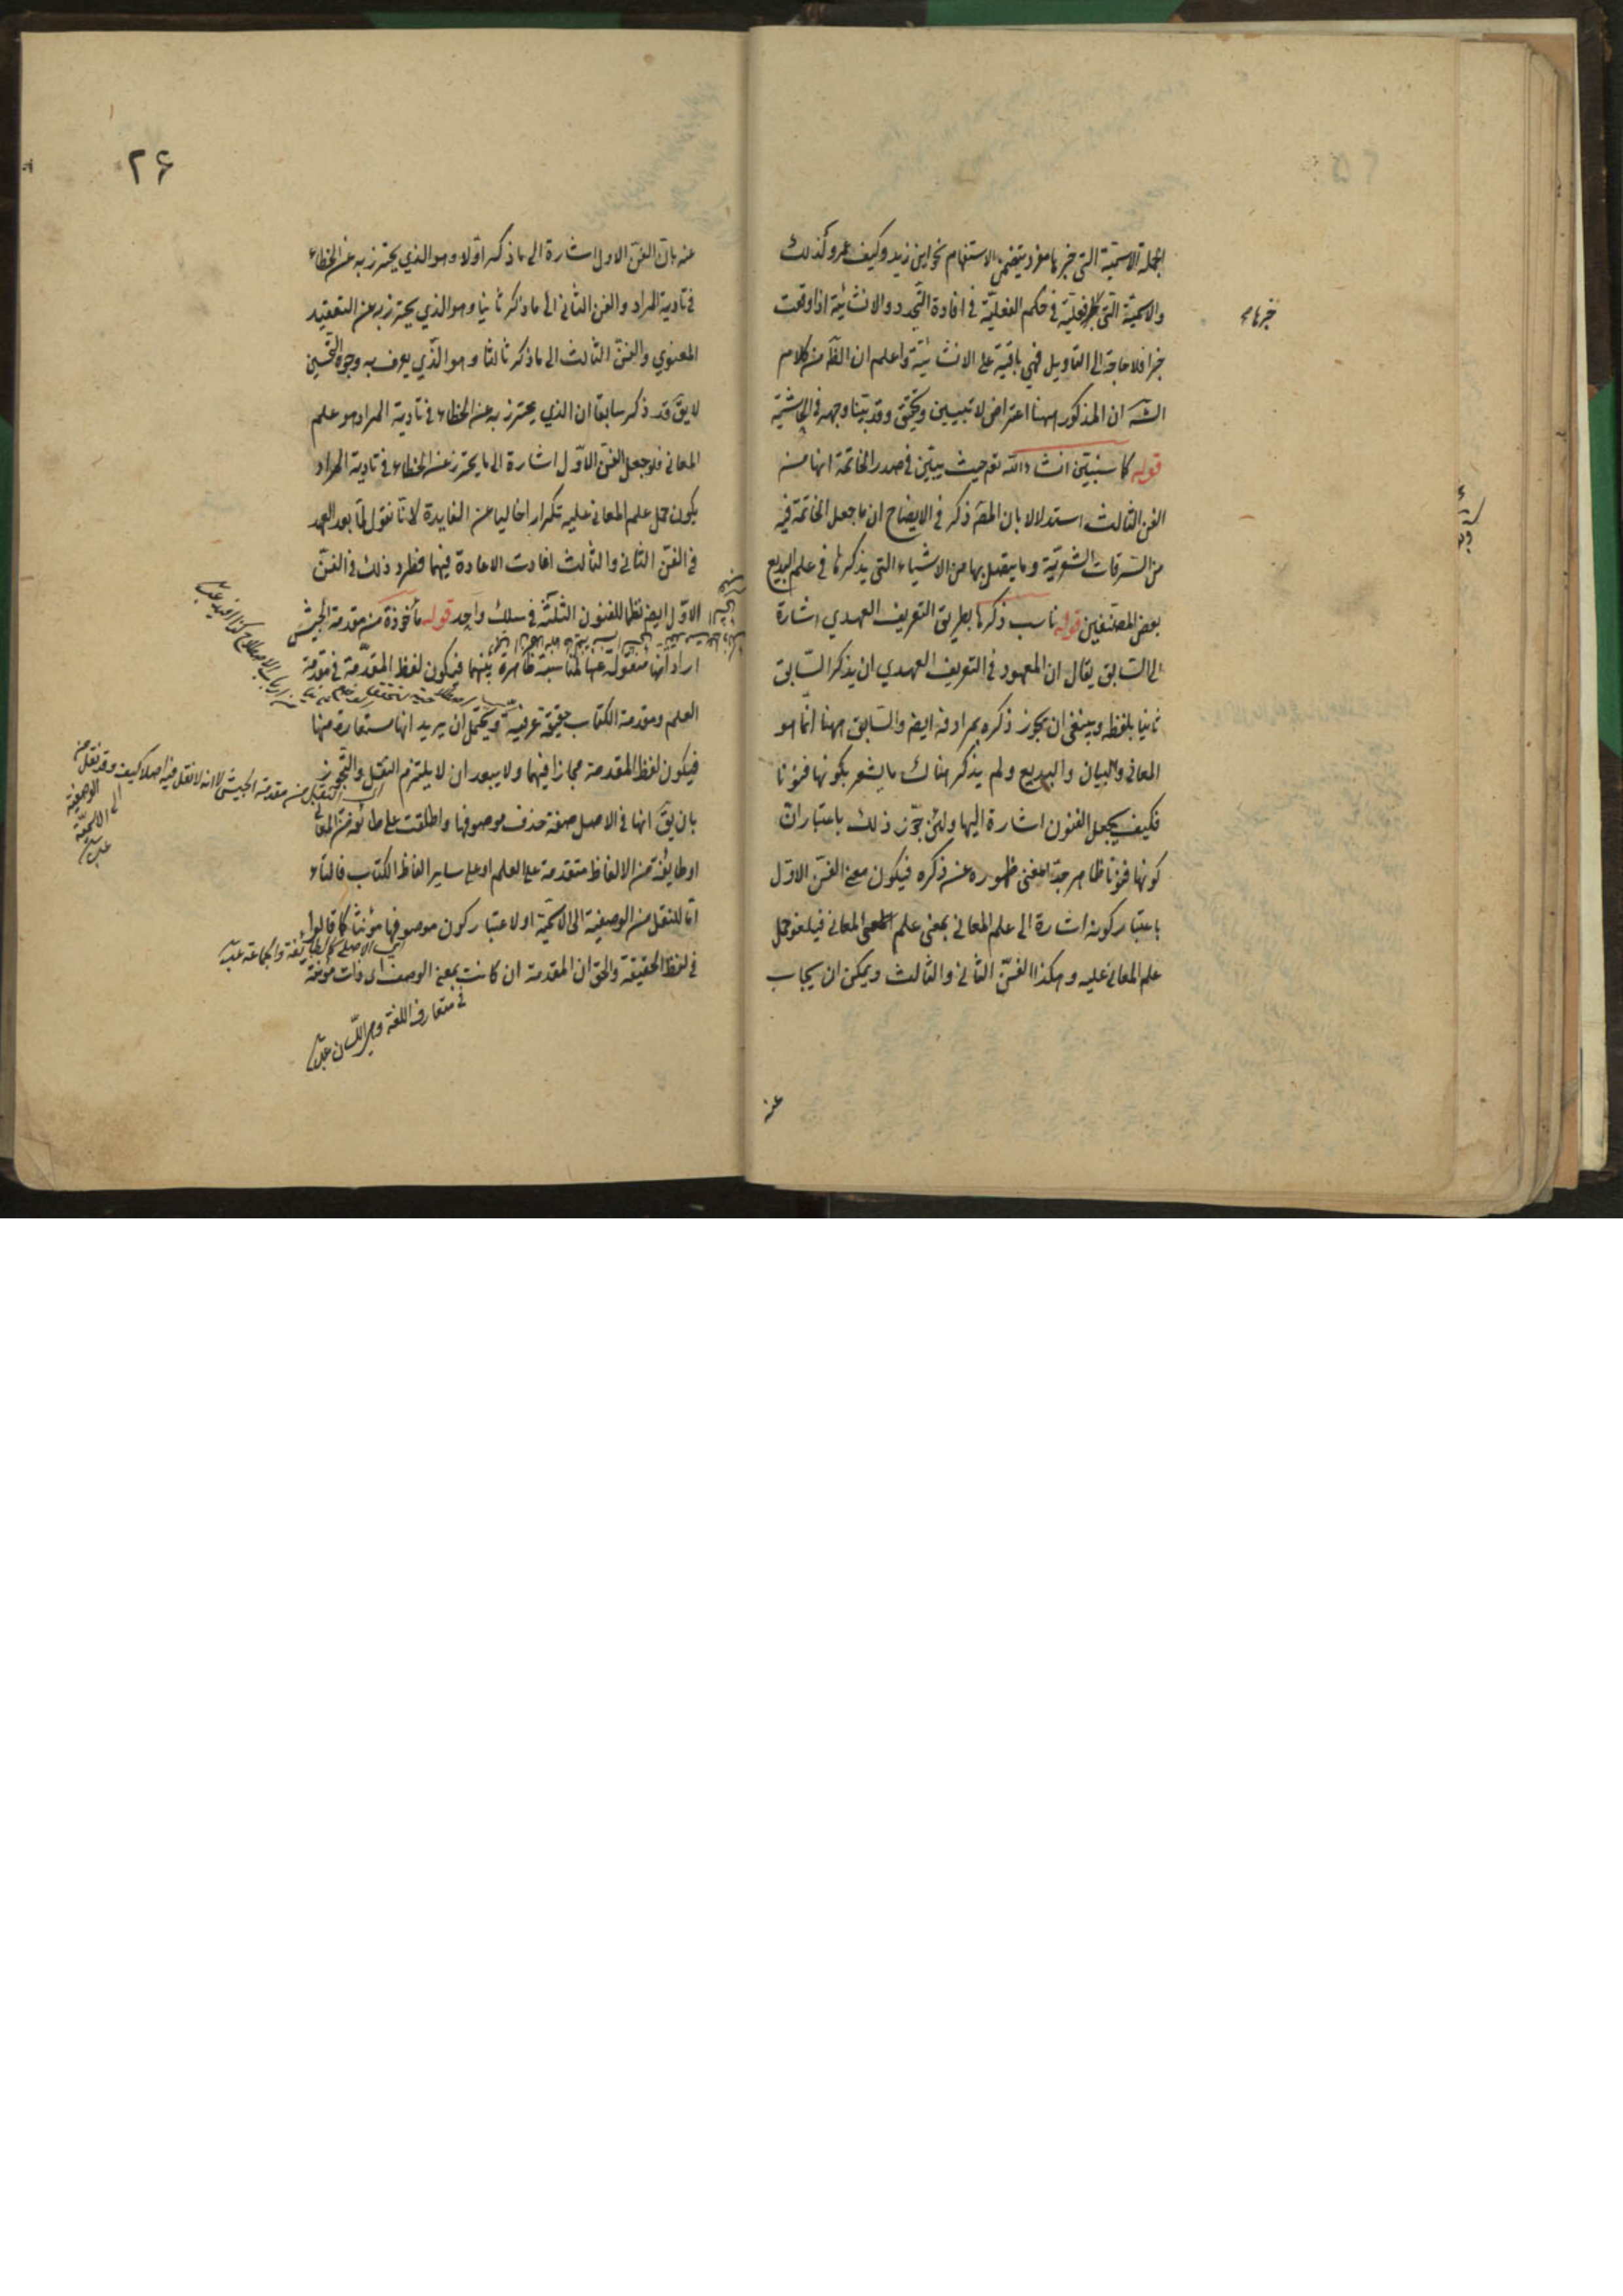 الجملة الاسمية التي خبرها مفرد يتضمن الاستفهام نحو اين زيد وكيف عمرو كذلك
والاسمية التي فعلية في حكم الفعلية في افادة التجدد والانشائية اذا وقعت
خبرها
خبرا فلا حاجة الى التاويل فهي باقية على الانشائية واعلم ان الظ من كلام
الش ان المذكور ههنا اعتراض لا تبيين وتحقيق وقد بينا وجهه في الحاشية
قوله كما سنبين انشاء الله تع حيث يبين في صدر الخاتمة انها من
الفن الثالث استدلالا بان المص ذكر في الايضاح ان ما جعل الخاتمة فيه
من السرقات الشعرية وما يتصل بها من الاشياء التي يذكرها في علم البديع
بعض المصنفين قوله ناسب ذكرها بطريق التعريف العهدي اشارة
الى السابق يقال ان المعهود في التعريف العهدي ان يذكر السابق
ثانيا بلفظه وينبغي ان يجوز ذكره بمرادفه ايض والسابق ههنا انما هو
المعاني والبيان والبديع ولم يذكر هناك ما يشعر بكونها فنونا
فكيف يجعل الفنون اشارة اليها ولئن جوز ذلك باعتبار ان
كونها فنونا ظاهر جدا لغنى ظهوره عن ذكره فيكون معنى الفن الاول
باعتبار كونه اشارة الى علم المعاني بمعنى علم المعاني فيلغو حمل
علم المعاني عليه وهكذا الفن الثاني والثالث ويمكن ان يجاب
عنه
۲۶
عنه بان الفن الاول اشارة الى ما ذكر اولا وهو الذي يحترز به عن الخطاء
في تادية المراد والفن الثاني الى ما ذكر ثانيا وهو الذي يحترز به عن التعقيد
المعنوي والفن الثالث الى ما ذكر ثالثا وهو الذي يعرف به وجوه التحسين
لا يق قد ذكر سابقا ان الذي يحترز به عن الخطاء في تادية المراد هو علم
المعاني فلو جعل الفن الاول اشارة الى ما يحترز عن الخطاء في تادية المراد
يكون حمل علم المعاني عليه تكرارا خاليا عن الفايدة لانا نقول لما بعد العهد
في الفن الثاني والثالث افادت الاعادة فيهما فطرد ذلك في الفن
الاول ايض نظما للفنون الثلثة في سلك واحد قوله مأخوذة من مقدمة الجيش
اراد انها منقولة عنها لمناسبة ظاهرة بينهما فيكون لفظ المقدمة في مقدمة
العلم ومقدمة الكتاب حقيقة عرفية ويحتمل ان يريد انها مستعارة منها
فيكون لفظ المقدمة مجازا فيهما ولا يبعد ان لا يلتزم النقل والتجوز
اى النقل من مقدمة الجيش لا انه لا نقل فيه اصلا كيف وقد نقل من
الوصفية
الى الاسمية
بان يق انها في الاصل صفة حذف موصوفها واطلقت على طائفة من المعاني
او طايفة من الالفاظ متقدمة على العلم او على ساير الفاظ الكتاب فالتاء
اما للنقل من الوصفية الى الاسمية او لاعتبار كون موصوفها مؤنثا كما قالوا
في الاصل كالطائفة والجماعة
في لفظ الحقيقة والحق ان المقدمة ان كانت بمعنى الوصف اى ذات مؤنثة
في متعارف اللغة